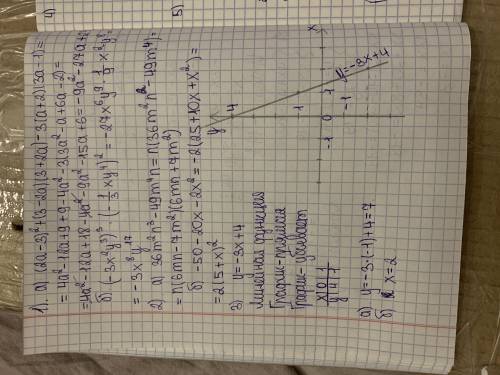 1. а) (2а-3)²+(3-2а)(3+2а)-3(а+2)(3а-1)=
=4а²-12а+9+9-4а²-3(3а²-а+6а-2)=
=4а²-12а+18-4а²-9а²-15а+6=-9а²-27а+2
б) (-3x²y³)³·(-1/3xy⁴)²=-27x⁶y⁹·1/9x²y⁸=
=-3x⁸y¹⁷
2) а) 36m²n³-49m⁴n=n(36m²n²-49m⁴)=
=n(6mn-7m²)(6mn+7m²)
б) -50-20x-2x²=-2(25+10x+x²)=
=2(5+x)²
3) y=-3x+4
Линейная функция
График-прямая
График-убывает
x 0 1
y 4 1
а) y=-3·(-1)+4=7
б) x=2
y=-3x+4
x
y
4
1
0
-1
-1
1
4)
5)